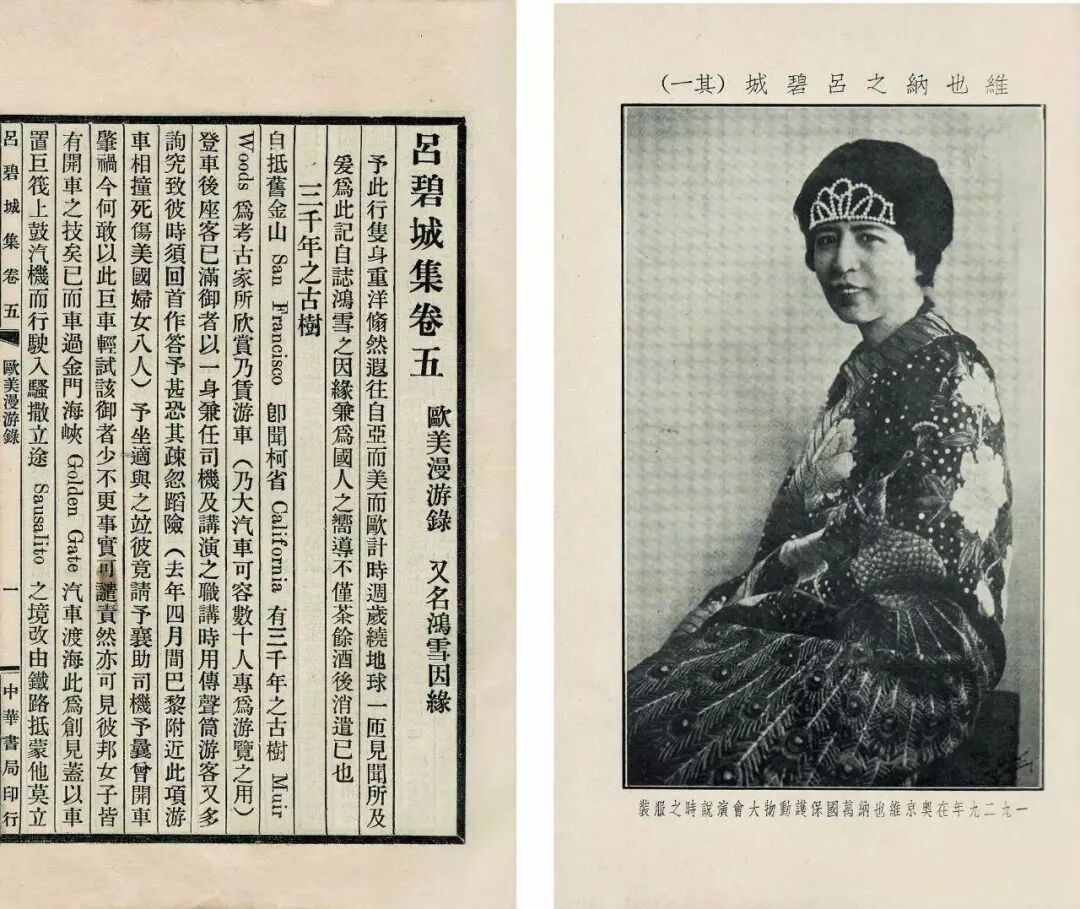 呂碧城集卷五
歐美漫游錄 又名鴻雪因緣
予此行隻身重洋翛然遐往自亞而美而歐計時週歲繞地球一匝見聞所及
爰為此記自誌鴻雪之因緣兼為國人之嚮導不僅茶餘酒後消遣已也
三千年之古樹
自抵舊金山 San Francisco 即聞柯省 California 有三千年之古樹 Muir
Woods 為考古家所欣賞乃賃游車（乃大汽車可容數十人專為游覽之用）
登車後座客已滿御者以一身兼任司機及講演之職講時用傳聲筒游客又多
詢究致彼時須回首作答予甚恐其疎忽蹈險（去年四月間巴黎附近此項游
車相撞死傷美國婦女八人）予坐適與之竝彼竟請予襄助司機予曩曾開車
肇禍今何敢以此巨車輕試該御者少不更事實可譴責然亦可見彼邦女子皆
有開車之技矣已而車過金門海峽 Golden Gate 汽車渡海此為創見蓋以車
置巨筏上鼓汽機而行駛入騷撒立途 Sausalito 之境改由鐵路抵蒙他莫立
呂碧城集卷五
歐美漫游錄
一
中華書局印行
維也納之呂碧城（其一）
一九二九年在奧京維也納萬國保護動物大會演說時之服裝